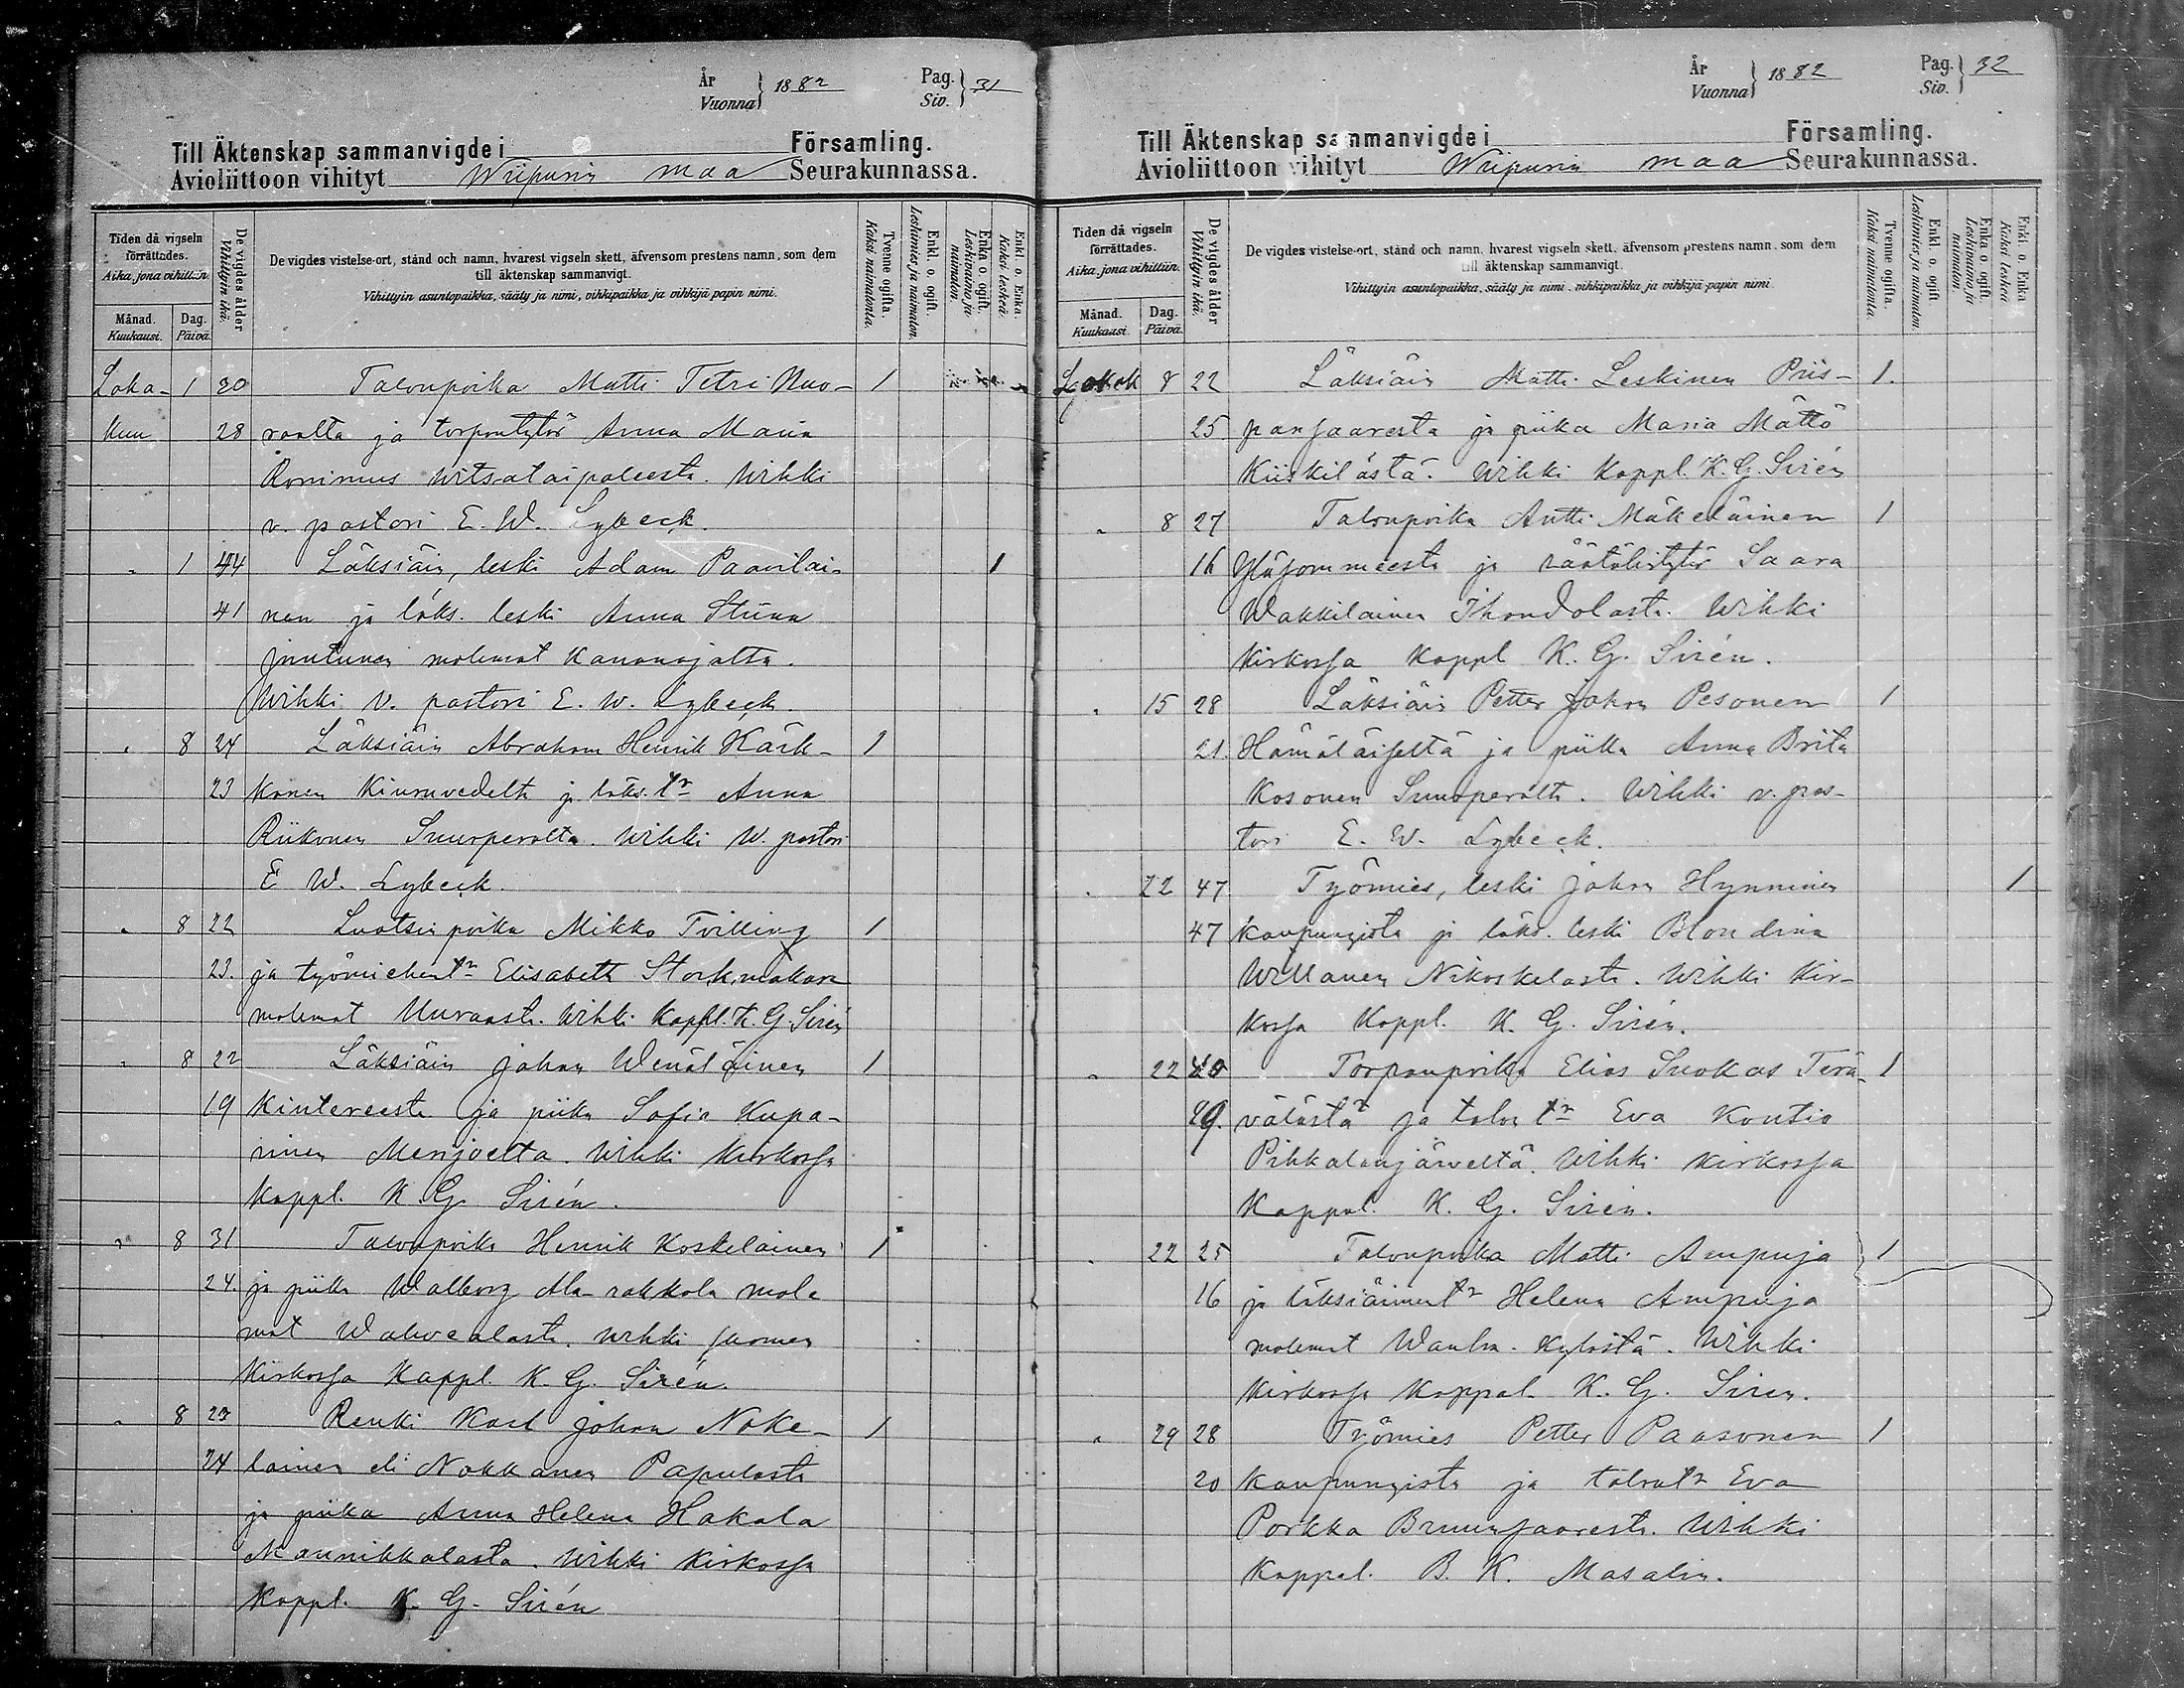 År
Vuonna } 1882 Pag.
Siv. } 31
Till Äktenskap sammanvigde i Församling.
Avioliittoon vihityt Wiipurin maa Seurakunnassa.
Tiden då vigseln förrättades.
Aika, jona vihittiin.
Månad. Kuukausi.
Dag. Päivä.
De vigdes ålder
Vihittyin ikä.
De vigdes vistelse-ort, stånd och namn, hvarest vigseln skett, äfvensom prestens namn, som dem
till äktenskap sammanvigt.
Vihittyin asuntopaikka, sääty ja nimi, vihkipaikka ja vihkijä papin nimi.
Tvenne ogifta.
Kaksi naimatonta.
Enkl. o. ogift.
Leskimies ja naimaton.
Enka o. ogift.
Leskivaimo ja naimaton.
Enkl. o. Enka.
Kaksi leskeä.
Loka- 1 30 Talonpoika Matti Tetri Nuo- 1
kuu 28 raalta ja torpantytär Anna Maria
Ronimus Witsataipaleesta. Wihki
v. pastori E. W. Lybeck.
" 1 44 Läksiäin, leski Adam Paavilai- 1
41 nen ja läks. leski Anna Stiina
Juutunen molemat Kananojalta.
Wihki v. pastori E. W. Lybeck.
" 8 24 Läksiäin Abraham Henrik Kärk- 1
23 känen Kiuruvedelta ja läks. tr Anna
Riikonen Suurperolta. Wihki W. pastori
E W. Lybeck.
" 8 22 Luotsin poika Mikko Tvilling 1
23. ja työmiehen tr Elisabeth Storkmakare
molemat Uuraasta. Wihki Kappl. K. G. Sirén
" 8 22 Läksiäin Johan Wenäläinen 1
19 Kintereestä ja piika Sofia Kupa-
rinen Merijoelta. Wihki Kirkossa
Kappl. K. G. Sirén.
" 8 31 Talonpoika Henrik Koskelainen 1
24. ja piika Walborg Ala-rakkola mole
mat Wahvealasta. Wihki Suomen
Kirkossa Kappl. K. G. Sirén.
" 8 23 Renki Karl Johan Noke- 1
24 lainen eli Nokkanen Papulasta
ja piika Anna Helena Hakala
Mannikkalasta. Wihki Kirkossa
Kappl. K. G. Sirén
År
Vuonna } 1882 Pag.
Siv. } 32
Till Äktenskap sammanvigde i Församling.
Avioliittoon vihityt Wiipurin maa Seurakunnassa.
Tiden då vigseln förrättades.
Aika, jona vihittiin.
Månad. Kuukausi.
Dag. Päivä.
De vigdes ålder
Vihittyin ikä.
De vigdes vistelse-ort, stånd och namn, hvarest vigseln skett, äfvensom prestens namn, som dem
till äktenskap sammanvigt.
Vihittyin asuntopaikka, sääty ja nimi, vihkipaikka ja vihkijä papin nimi.
Tvenne ogifta.
Kaksi naimatonta.
Enkl. o. ogift.
Leskimies ja naimaton.
Enka o. ogift.
Leskivaimo ja naimaton.
Enkl. o. Enka
Kaksi leskeä.
8 22 Läksiäin Matti Leskinen Piis- 1.
25 pansaaresta ja piika Maria Mättö
Kiiskilästä. Wihki Kappl. K. G. Sirén
" 8 27 Talonpoika Antti Mäkeläinen 1
16 Yläsommeesta ja räätälintytär Saara
Wakkilainen Ihandolasta. Wihki
Kirkossa Kappl K. G. Sirén.
" 15 28 Läksiäin Petter Johan Pesonen 1
21. Hämäläiseltä ja piika Anna Brita
Kosonen Suurperältä. Wihki v. pas-
tori E. W. Lybeck.
" 22 47 Työmies, leski Johan Hynninen 1
47 Kaupungista ja läks. leski Blondina
Willanen Nikoskelasta. Wihki Kir-
kossa Kappl. K. G. Sirén.
" 22 20 Torpanpoika Elias Suokas Terä- 1
29. välästä ja talon tr Eva Kontio
Pihkalanjärveltä. Wihki Kirkossa
Kappal. K. G. Sirén.
" 22 25 Talonpoika Matti Ampuja 1
16 ja läksiäimen tr Helena Ampuja
molemat Wanha-Kylästä. Wihki
Kirkossa Kappal. K. G. Siren.
" 29 28 Työmies Petter Paasonen 1
20 Kaupungista ja talon tr Eva
Porkka Bruunsaaresta. Wihki
Kappal. B. K. Masalin.